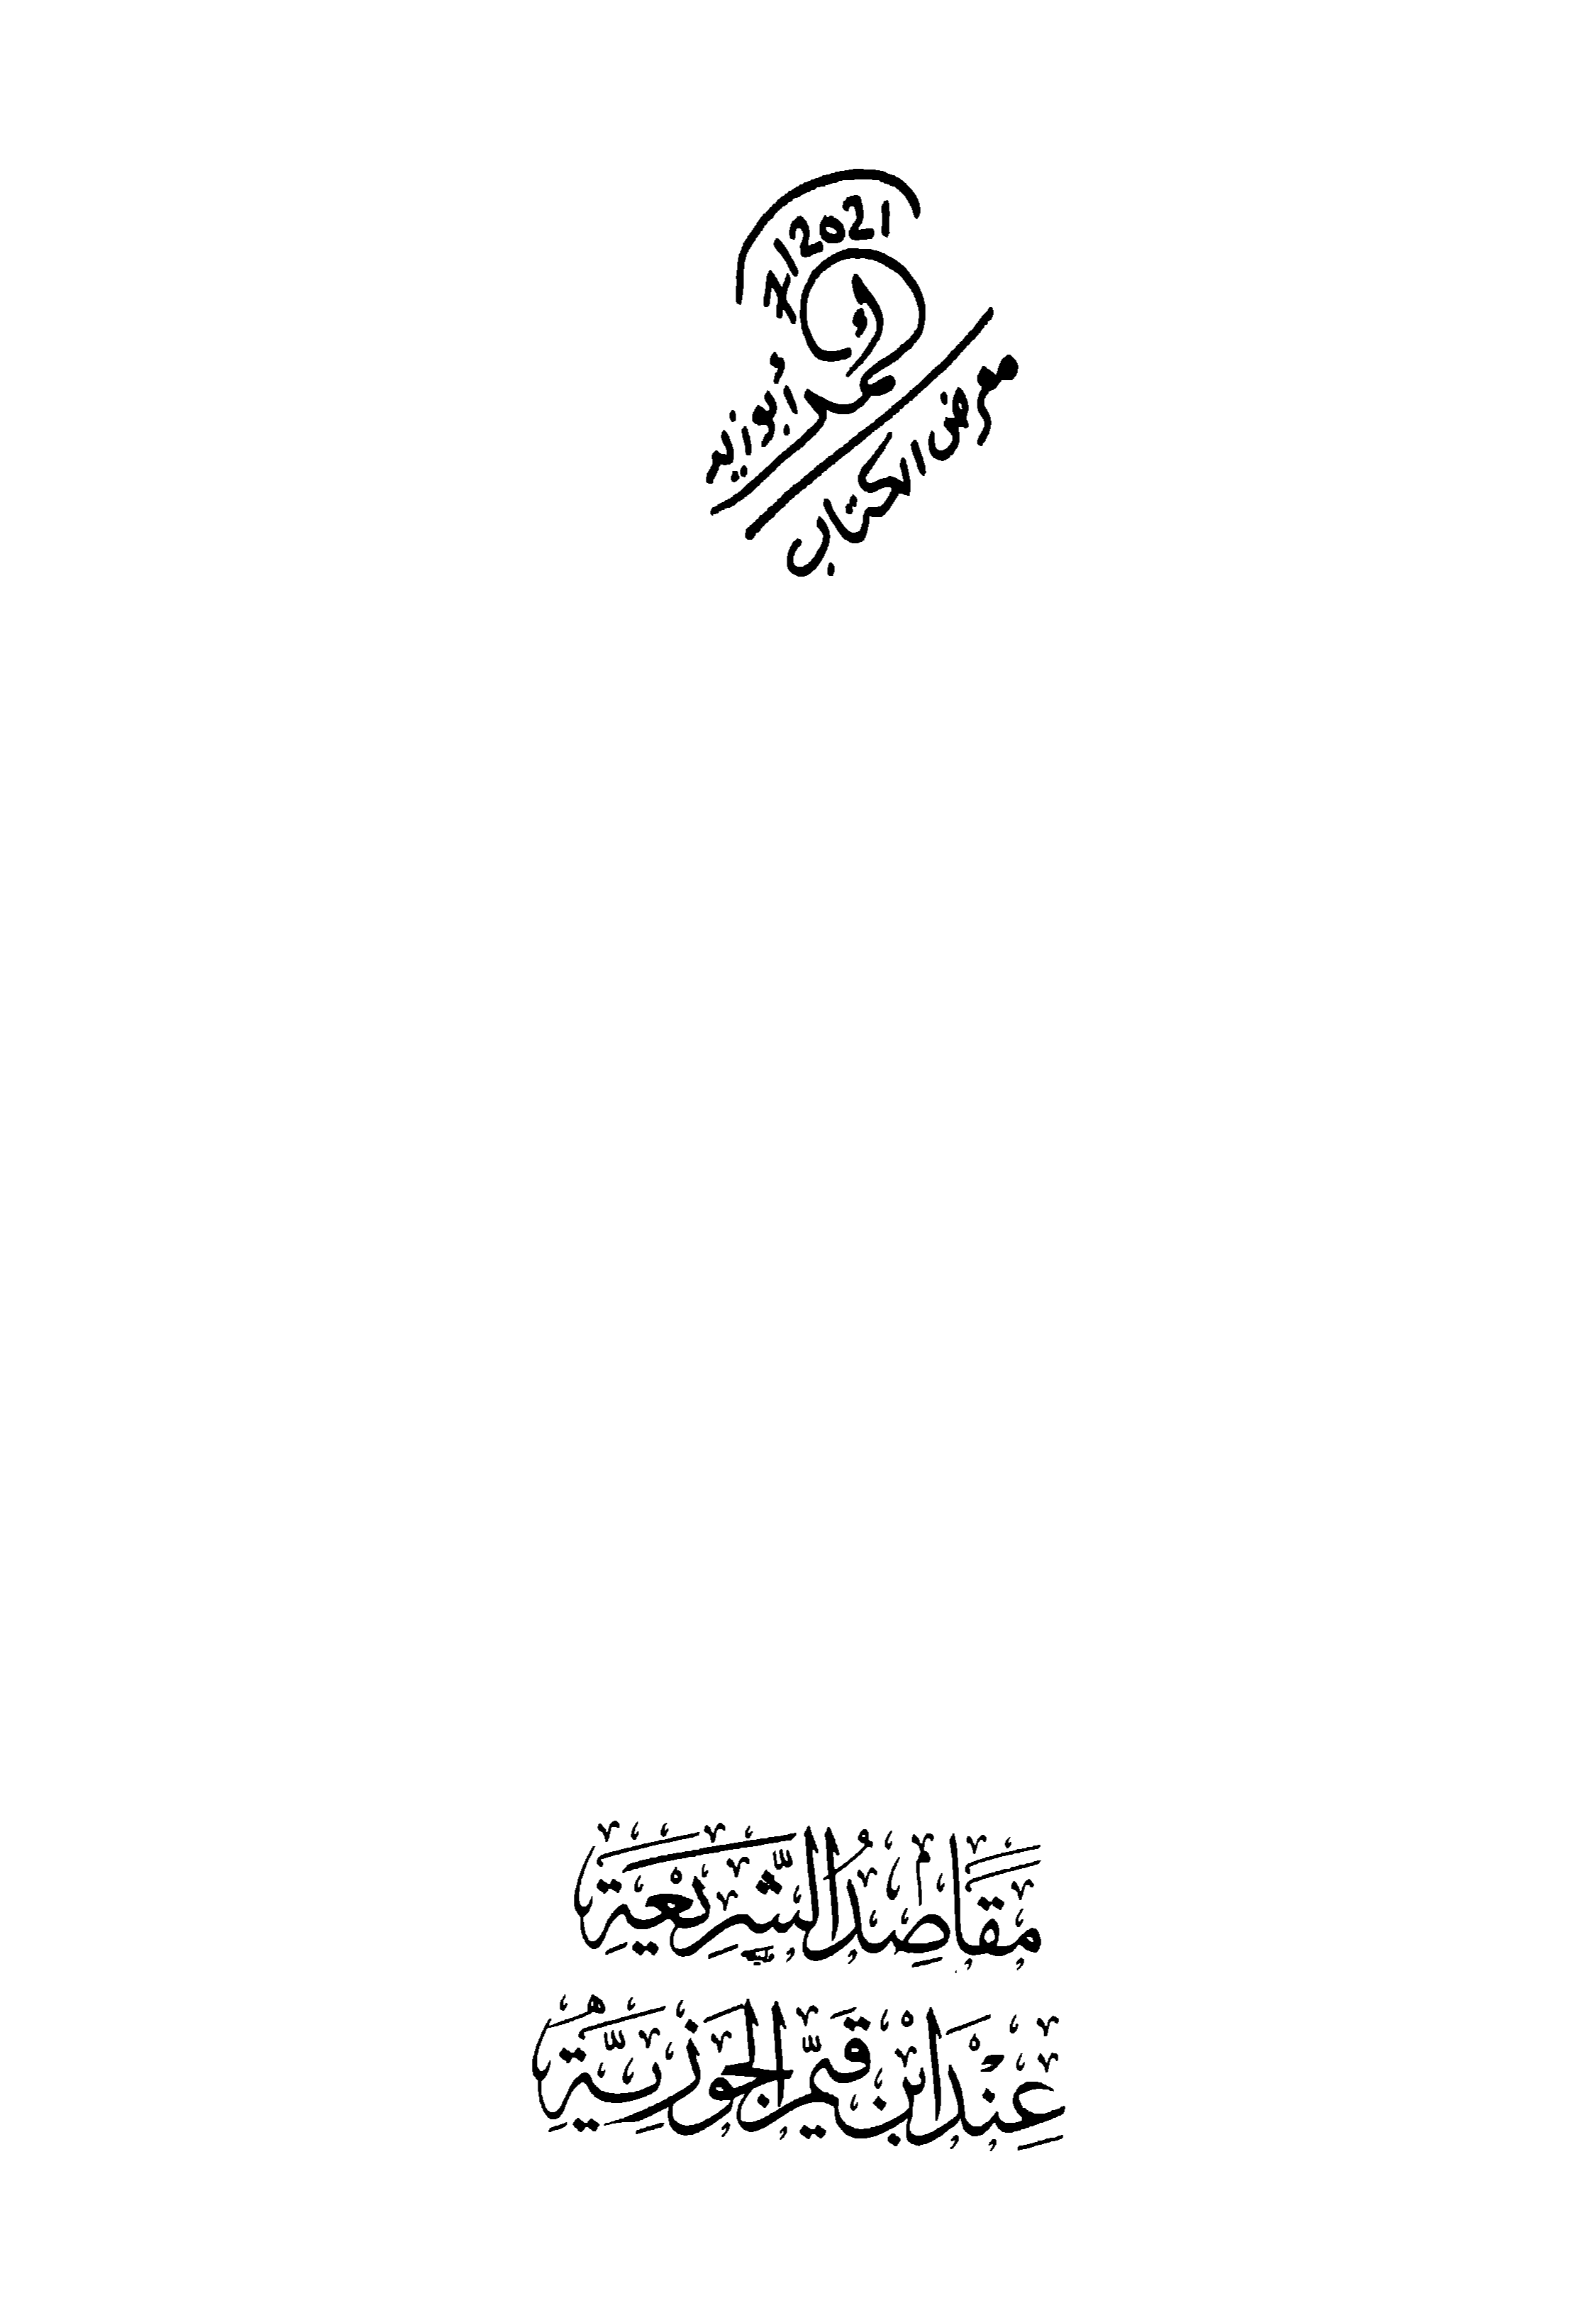 2021
أبوزيد
معرض الكتاب
مَقَاصِدُ الشَّرِيْعَةِ
عِنْدَ ابْنِ قَيِّمِ الجَوْزِيَّةِ